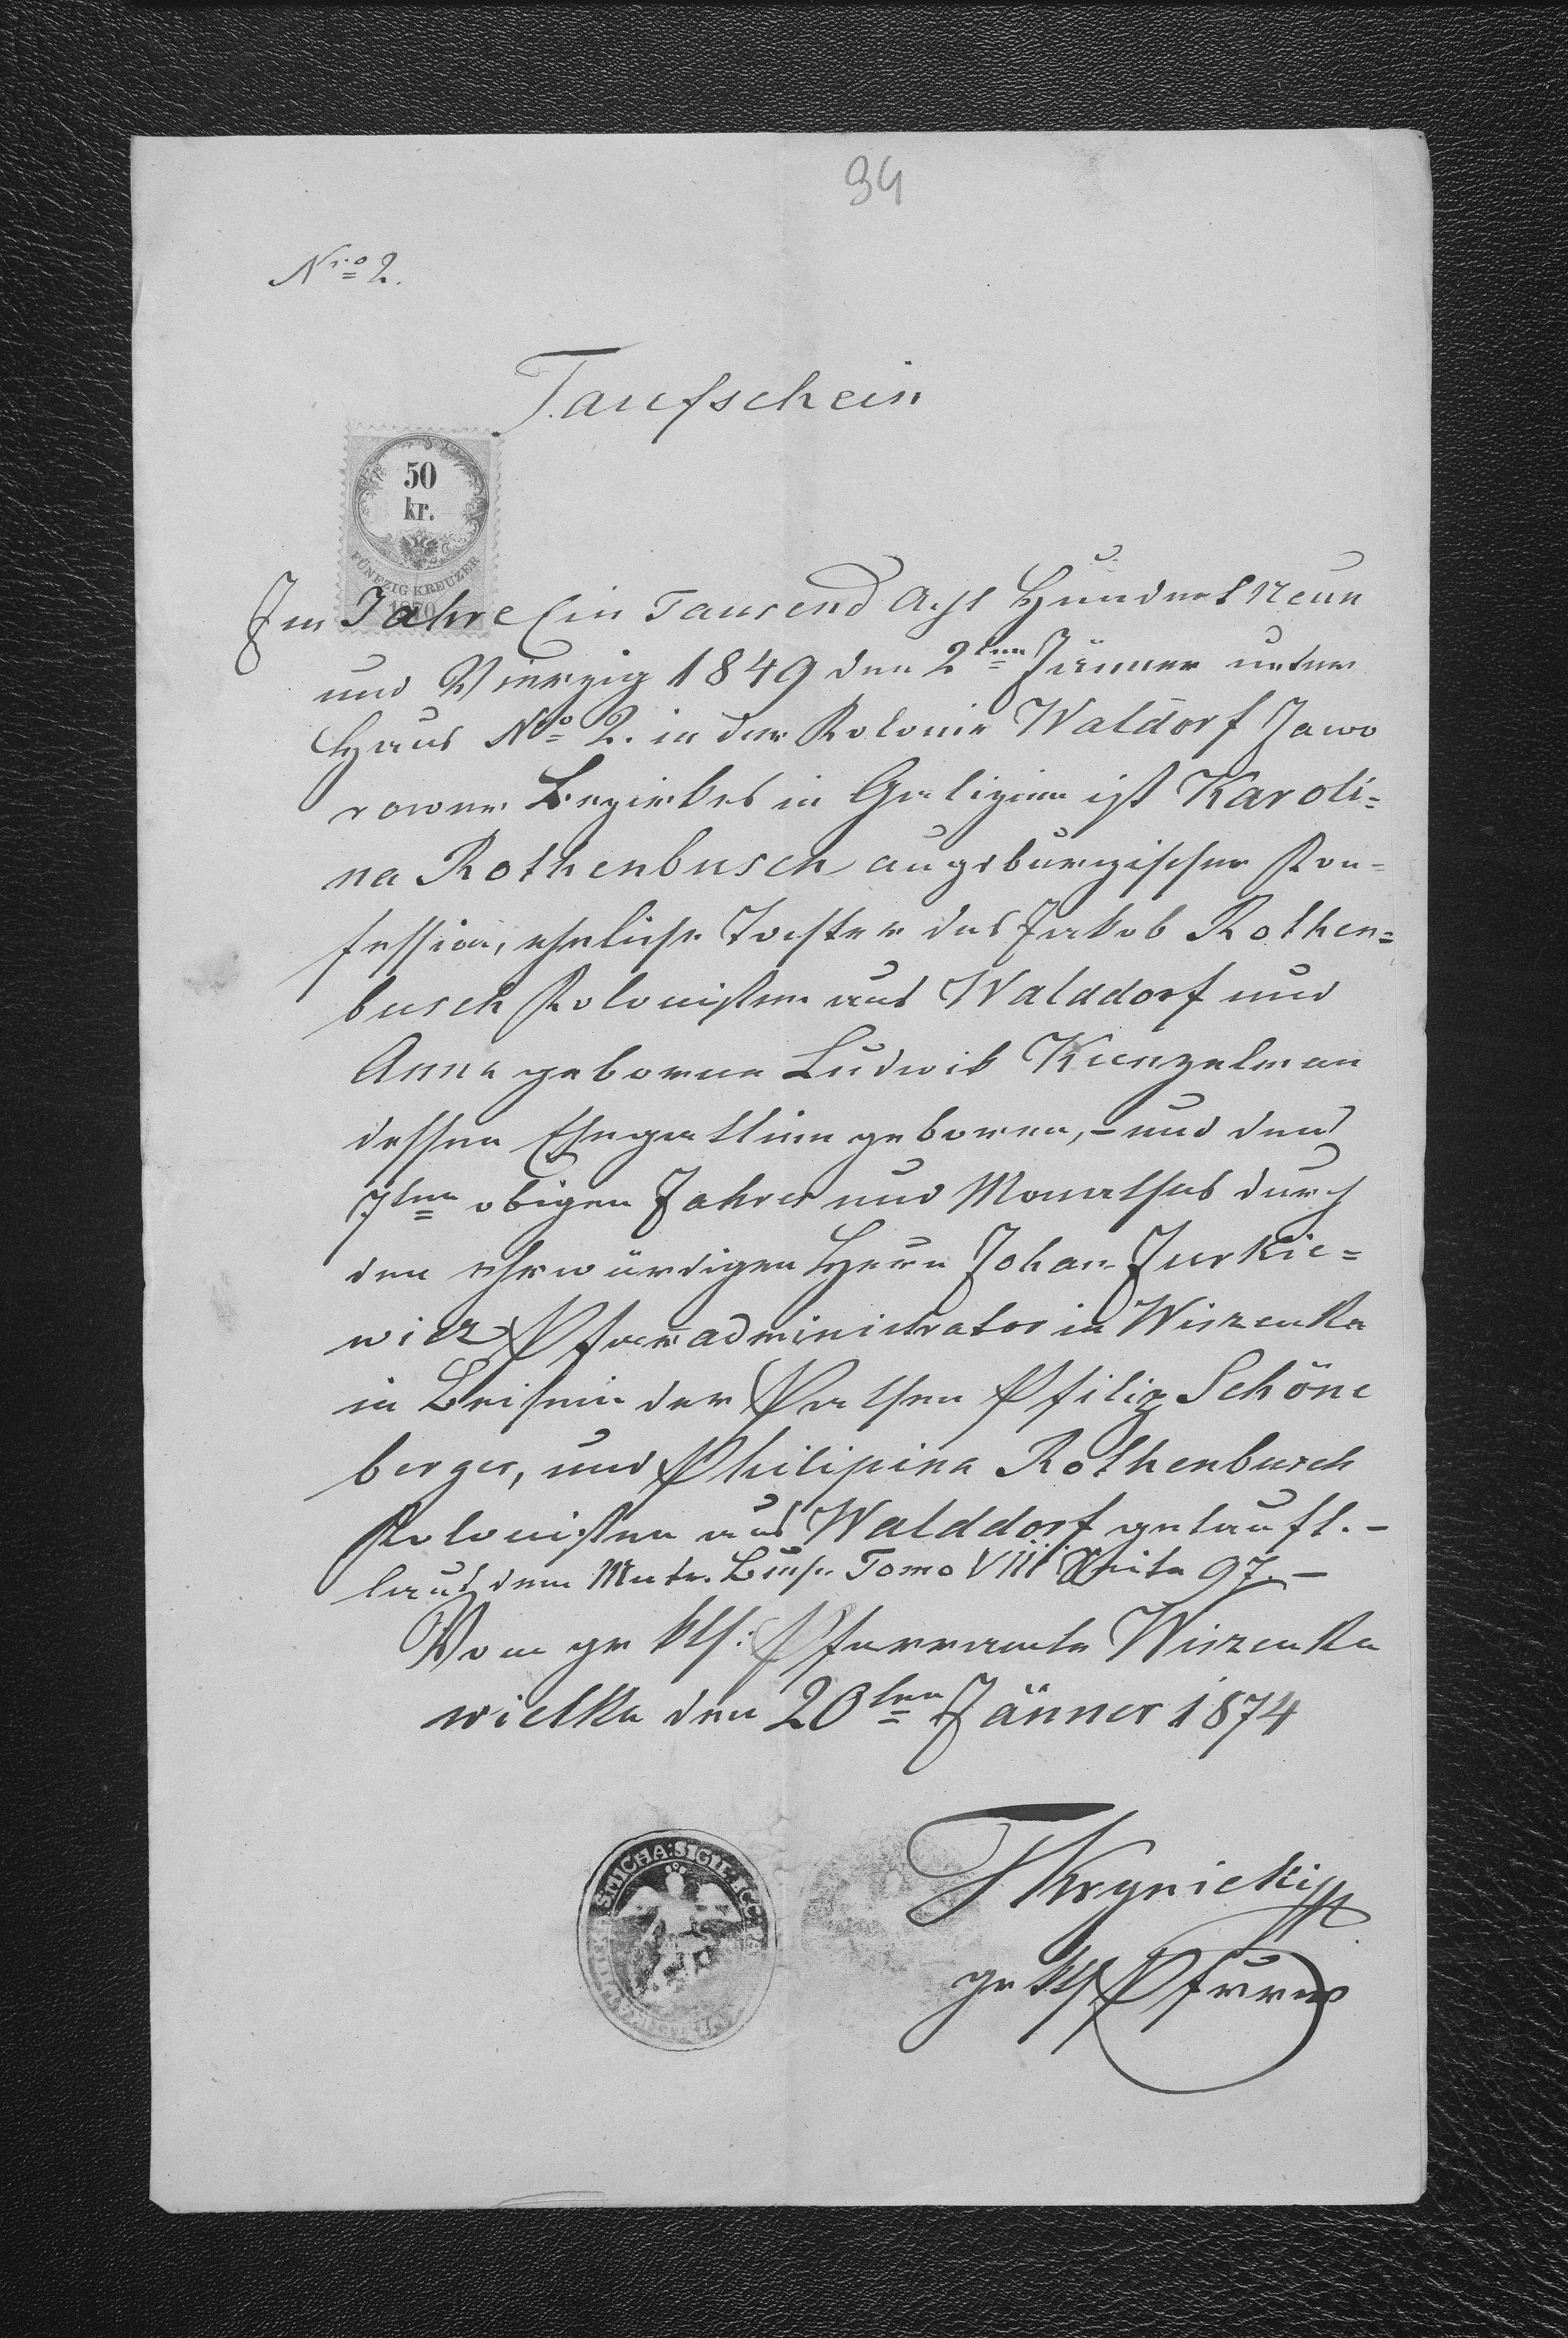 34
Nro 2.
Taufschein
50
kr.
FÜNFZIG KREUZER
1870
Im Jahre Ein Tausend Acht Hundert Neun
und Vierzig 1849 den 2ten Jänner unter
Haus No 2. in der Kolonie Waldorf Jawo
rower Bezirkes in Galizien ist Karoli=
na Rothenbusch augsburgischer Kon=
fession, eheliche Tochter des Jakob Rothen=
busch Kolonisten aus Walddorf und
Anna geborene Ludwik Kunzelman
dessen Ehegattinn geboren, – und den
7ten obigen Jahres und Monathes durch
den ehrwürdigen Herrn Johan Jurkie=
wicz Pfarradministrator in Wiszenka
in Beisein der Pathen Philip Schöne
berger, und Philipina Rothenbusch
Kolonisten aus Walddorf getauft. –
laut dem Matr. Buche Tomo VIII Seite 97. –
Vom gr kth: Pfarramte Wiszenka
wielka den 20ten Jänner 1874
SIGIL
TKrynicki
gr kth Pfarrer